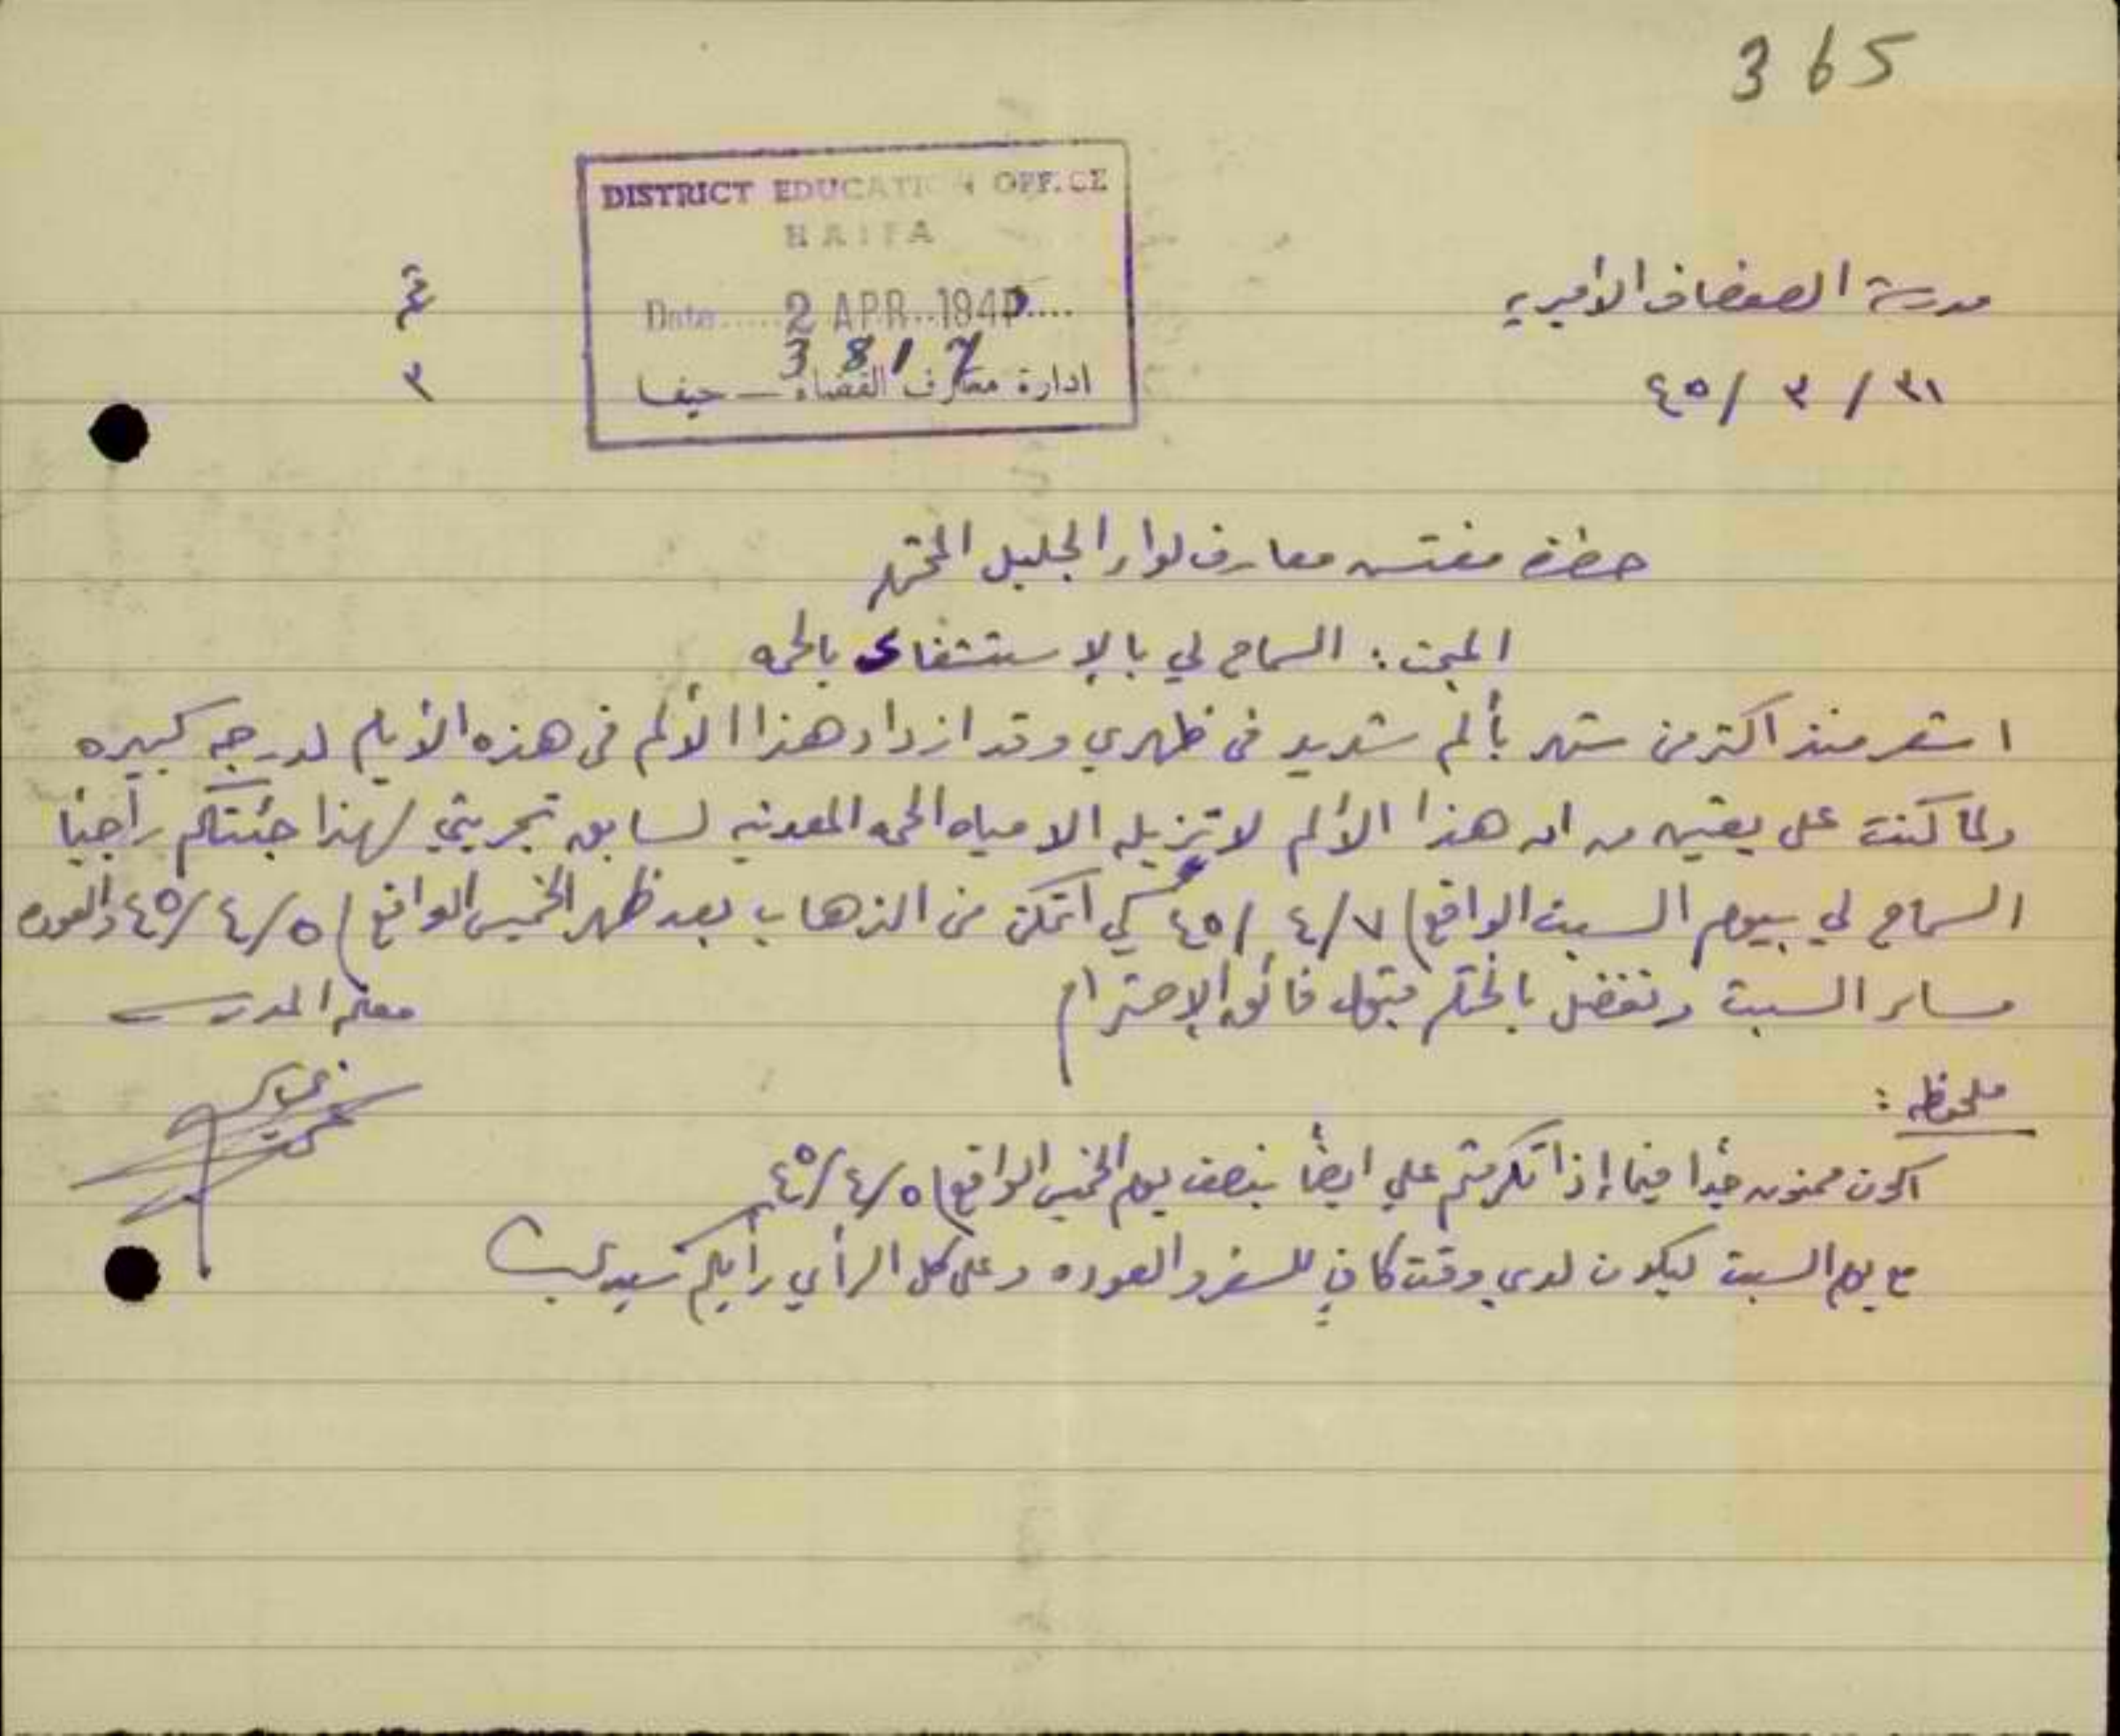 365
DISTRICT EDUCATION OFFICE
HAIFA
Date..... 2 APR. 1945....
3817
ادارة معارف القضاء — حيفا
مدرسة الصفصاف الأميريه
٣١ / ٣ / ٤٥
٣
حضرة مفتش معارف لواء الجليل المحترم
المبحث: السماح لي بالإستشفاء بالحمه
اشعر منذ اكثر من شهر بألم شديد في ظهري وقد ازداد هذا الألم في هذه الأيام لدرجه كبيره
ولما كنت على يقين من ان هذا الألم لا تزيله الا مياه الحمه المعدنيه لسابق تجربتي لهذا جئتكم راجيًا
السماح لي بيوم السبت الواقع ٧/٤/٤٥ كي اتمكن من الذهاب بعد ظهر الخميس الواقع ٥/٤/٤٥ والعوده
مساء السبت وتفضل بالختام بقبول فائق الإحترام
معلم المدرسه
ملحوظه:
اكون ممنون جدا فيما إذا تكرمتم علي ايضًا بنصف يوم الخميس الواقع ٥/٤/٤٥
مع يوم السبت ليكون لدي وقت كافٍ للسفر والعوده وعلى كل الرأي رأيكم سيدي